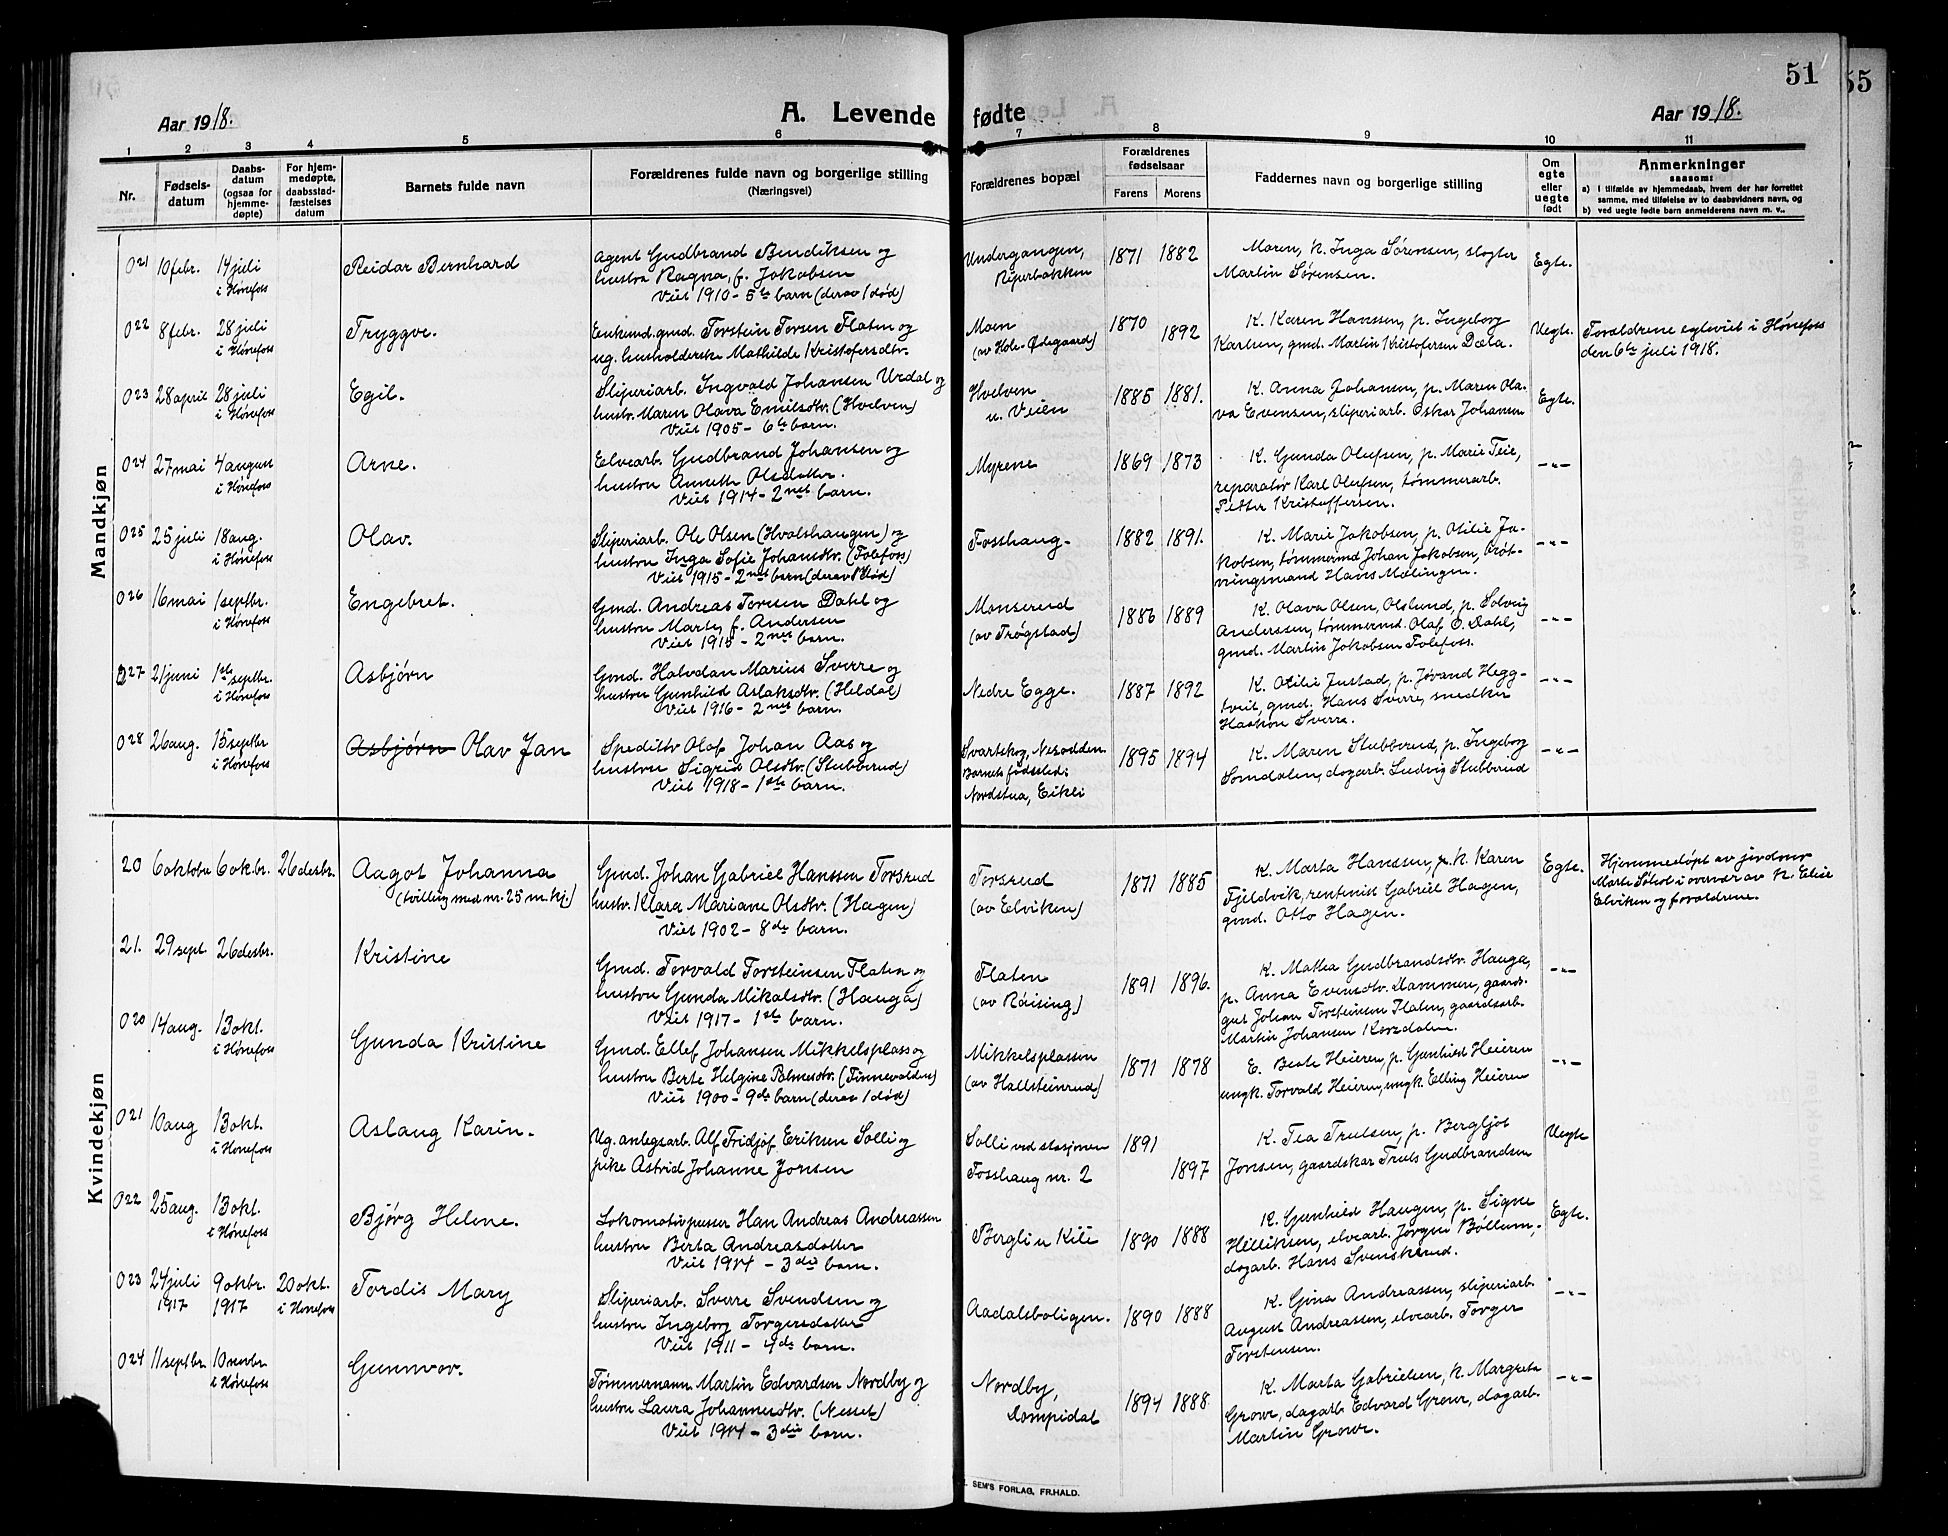 51
55
Aar 1918.
A. Levende fødte
Aar 1918.
1 2 3 4 5 6 7 8 9 10 11
Nr.
Fødsels-
datum
Daabs-
datum
(ogsaa for
hjemme-
døpte)
For hjem-
medøpte,
daabsstad-
fæstelses
datum
Barnets fulde navn
Forældrenes fulde navn og borgerlige stilling
(Næringsvei)
Forældrenes bopæl
Forældrenes
fødselsaar
Farens Morens
Faddernes navn og borgerlige stilling
Om
egte
eller
uegte
født
Anmerkninger
saasom:
a) i tilfælde av hjemmedaab, hvem der har forrettet
samme, med tilføielse av to daabsvidners navn, og
b) ved uegte fødte barn anmelderens navn m. v..
Mandkjøn
021 10 febr. 14 juli
i Hønefoss
Reidar Bernhard
Agent Gudbrand Bendiksen og
hustru Ragna, f. Jakobsen
Viet 1910 - 5te barn (derav 1 død)
Undergangen,
Riperbakken
1871 1882
Maren, k. Inga Sørensen, slagter
Martin Sørensen.
Egte.
022 8 febr. 28 juli
i Hønefoss
Tryggve.
Enkemd. gmd. Torstein Torsen Flaten og
ug. husholderske Mathilde Kristofersdtr.
Moen
(av Hole-Ødegaard)
1870 1892
K. Karen Hanssen, p. Ingeborg
Karlsen, gmd. Martin Kristofersen Dæla.
Uegte.
Forældrene egteviet i Hønefoss
den 6te juli 1918.
023 28 april 28 juli
i Hønefoss
Egil.
Sliperiarb. Ingvald Johansen Urdal og
hustr. Maren Olava Emilsdtr. (Hvelven)
Viet 1905 - 6te barn.
Hvelven
u. Veien
1885 1881.
K. Anna Johansen, p. Maren Ola-
va Evensen, sliperiarb. Oskar Johansen
Egte.
024 27 mai 4 august
i Hønefoss
Arne.
Elvearb. Gudbrand Johansen og
hustru Annette Olsdatter.
Viet 1914 - 2net barn.
Myrene
1869 1873
K. Gunda Olufsen, p. Marie Teie,
reparatør Karl Olufsen, tømmerarb.
Petter Kristoffersen.
-"-
025 25 juli 18 aug.
i Hønefoss
Olav.
Sliperiarb. Ole Olsen (Hvalshaugen) og
hustru Inga Sofie Johansdtr. (Follefoss)
Viet 1915 - 2net barn (derav 1 død)
Fosshaug-
1882 1891.
K. Marie Jakobsen, p. Otilie Ja-
kobsen, tømmermd Johan Jakobsen, brøt-
ningsmand Hans Mælingen.
-"-
026 16 mai 1 septbr.
i Hønefoss
Engebret.
Gmd. Andreas Torsen Dahl og
hustru Marte, f. Andersen
Viet 1915 - 2net barn.
Monserud
(av Trøgstad)
1886 1889
K. Olava Olsen, Olslund, p. Solveig
Anderssen, tømmermd. Olaf O. Dahl,
gmd. Martin Jakobsen Follefoss.
-"-
027 21 juni 1ste septbr.
i Hønefoss
Asbjørn
Gmd. Halvdan Marius Sverre og
hustru Gunhild Aslaksdtr. (Heldal)
Viet 1916 - 2net barn.
Nedre Egge.
1887 1892
K. Otilie Justad, p. Jøvand Hegg-
tveit, gmd. Hans Sverre, snedker
Haakon Sverre.
-"-
028 26 aug. 15 septbr
i Hønefoss
Asbjørn Olav Jan
Speditør Olaf Johan Aas og
hustru Sigrid Olsdtr. (Stubberud)
Viet 1918 - 1ste barn.
Svartskog, Nesodden
Barnets fødested:
Nordstua, Eikli
1895 1894
K. Maren Stubberud, p. Ingeborg
Somdalen, dagarb. Ludvig Stubberud
-"-
Kvindekjøn
20 6 oktobr 6 okbr. 26 desbr.
Aagot Johanna
(tvilling med nr. 25 m.kj.)
Gmd. Johan Gabriel Hanssen Torsrud
hustr. Klara Mariane Olsdtr. (Hagen)
Viet 1902 - 8de barn.
Torsrud
(av Elviken)
1871 1885
K. Marta Hanssen, p. k. Karen
Fjeldvik, rentenist Gabriel Hagen,
gmd. Otto Hagen.
Egte.
Hjemmedøpt av jordmor
Marte Søhol i overvær av k. Elise
Elviken og forældrene.
21. 29 sept. 26 desbr.
Kristine
Gmd. Torvald Torsteinsen Flaten og
hustru Gunda Mikalsdtr. (Hauga)
Viet 1917 - 1ste barn.
Flaten
(av Røising)
1891 1896.
K. Mathea Gudbrandsdtr. Hauga,
p. Anna Evensdtr. Dammen, gaards-
gut Johan Torsteinsen Flaten, gaardsarb.
Martin Johansen Korsdalen.
-"-
020 14 aug. 13 okt.
i Hønefoss
Gunda Kristine
Gmd. Ellef Johansen Mikkelsplass og
hustru Berte Helgine Palmesdtr. (Finnevolden)
Viet 1900 - 9de barn (derav 1 død)
Mikkelsplassen
(av Hallsteinrud)
1871 1878
E. Beate Heieren, p. Gunhild Heieren
ungk. Torvald Heieren, ungk. Elling Heieren
-"-
021 10 aug 13 okt.
i Hønefoss
Aslaug Karin.
Ug. anlegsarb. Alf Fridjof Eriksen Solli og
pike Astrid Johanne Jonsen
Solli ved stasjonen
Fosshaug nr. 2
1891
1897
K. Tea Trulsen, p. Bergljot
Jonsen, gaardskar Truls Gudbrandsen
Uegte
022 25 aug. 13 okt.
i Hønefoss
Bjørg Helene.
Lokomotivpusser Han Andreas Andreassen
hustru Berta Andreasdatter
Viet 1914 - 3die barn.
Bergli u Kile
1890 1888
K. Gunhild Haugen, p. Signe
Hilliksen, elvearb. Jørgen Bøllum,
dagarb. Hans Svenskerud.
Egte.
023 24 juli
1917
9 okbr.
1917
20 okt.
i Hønefoss
Tordis Mary
Sliperiarb. Sverre Svendsen og
hustru Ingeborg Torgersdatter
Viet 1911 - 4de barn.
Aadalsboligen.
1890 1888
K. Gina Andreassen, sliperiarb.
August Andreassen, elvearb. Torger
Torstensen.
-"-
024 11 septbr. 10 novbr.
i Hønefoss
Gunnvor.
Tømmermann Martin Edvardsen Nordby og
hustru Laura Johannesdtr. (Nesset)
Viet 1914 - 3die barn.
Nordby,
Dompidal
1894 1888
K. Marta Gabrielsen, k. Margrete
Grower, dagarb Edvard Grower, dagarb.
Martin Grower.
-"-
SEM'S FORLAG, FR.HALD.